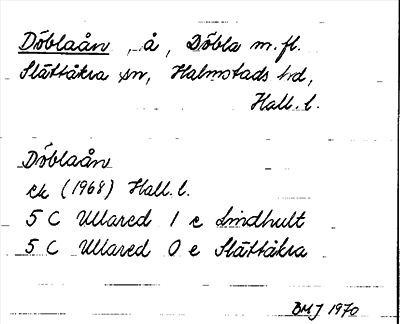 Döblaån , å , Döbla m.fl.
Slättåkra sn, Halmstads hd,
Hall. l.
Döblaån
ek (1968) Hall. l.
5 C Ullared 1 e Lindhult
5 C Ullared 0 e Slättåkra
BMJ 1970